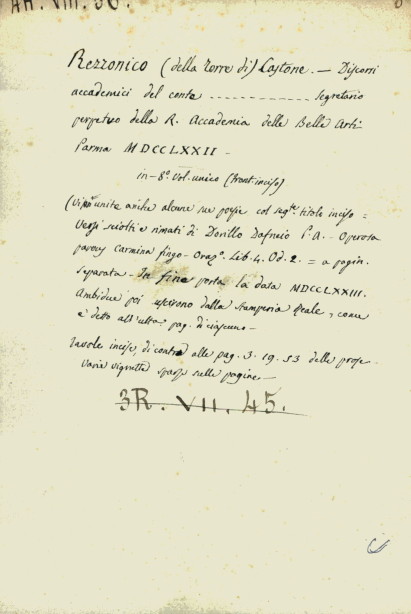 AH. VIII. 56.
Rezzonico (della Torre di) Castone. — Discorsi
accademici del conte ------------- segretario
perpetuo della R. Accademia delle Belle Arti
Parma MDCCLXXII —
in-8° vol. unico (front. inciso)
(Vi sono unite anche alcune sue poesie col segte. titolo inciso =
Versi sciolti e rimati di Dorillo Dafneio P. A. — Operosa
parvus Carmina fingo — Orazo. Lib. 4. Od. 2. = a pagin.
separata — In fine porta la data MDCCLXXIII.
Ambidue poi uscirono dalla stamperia Reale, come
è detto all'ulta. pag. di ciascuno —
Tavole incise, di contro alle pag. 3. 19. 53 delle prose —
Varie vignette sparse sulle pagine —
3R. VII. 45.